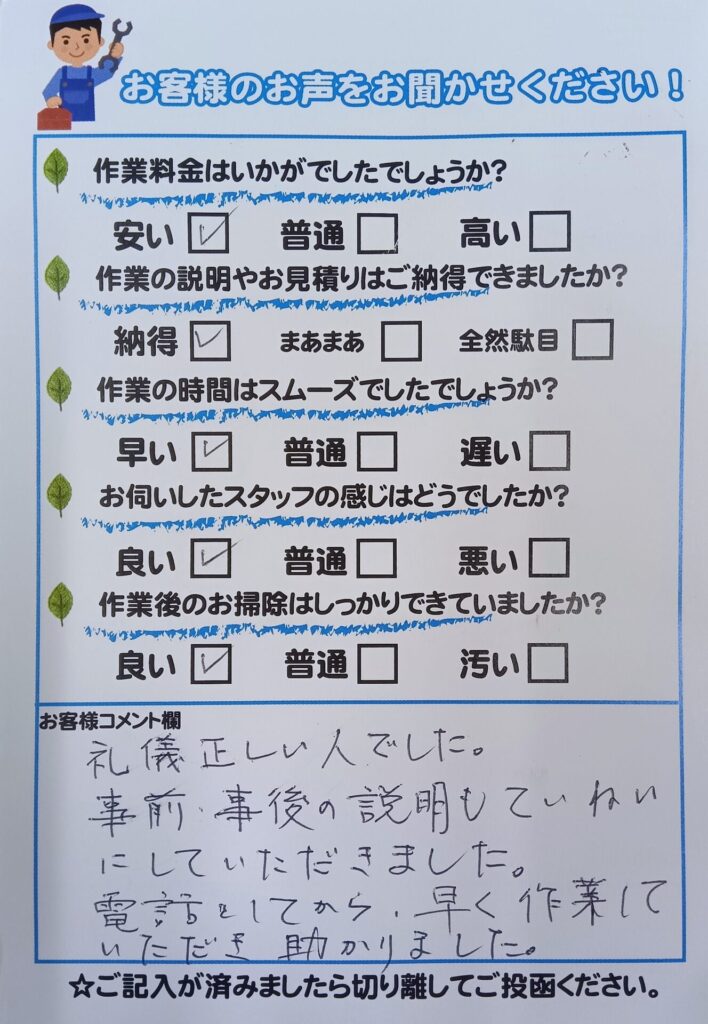 お客様のお声をお聞かせください！
作業料金はいかがでしたでしょうか？
安い ☑ 普通 ☐ 高い ☐
作業の説明やお見積りはご納得できましたか？
納得 ☑ まあまあ ☐ 全然駄目 ☐
作業の時間はスムーズでしたでしょうか？
早い ☑ 普通 ☐ 遅い ☐
お伺いしたスタッフの感じはどうでしたか？
良い ☑ 普通 ☐ 悪い ☐
作業後のお掃除はしっかりできていましたか？
良い ☑ 普通 ☐ 汚い ☐
お客様コメント欄
礼儀正しい人でした。
事前、事後の説明もていねい
にしていただきました。
電話をしてから、早く作業して
いただき助かりました。
☆ご記入が済みましたら切り離してご投函ください。